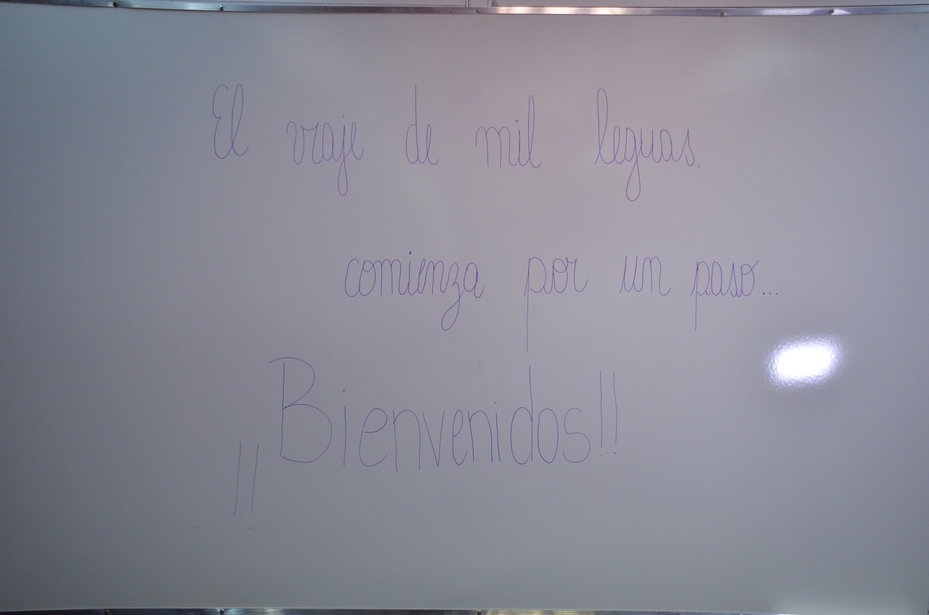 El viaje de mil leguas,
comienza por un paso...
¡¡Bienvenidos!!